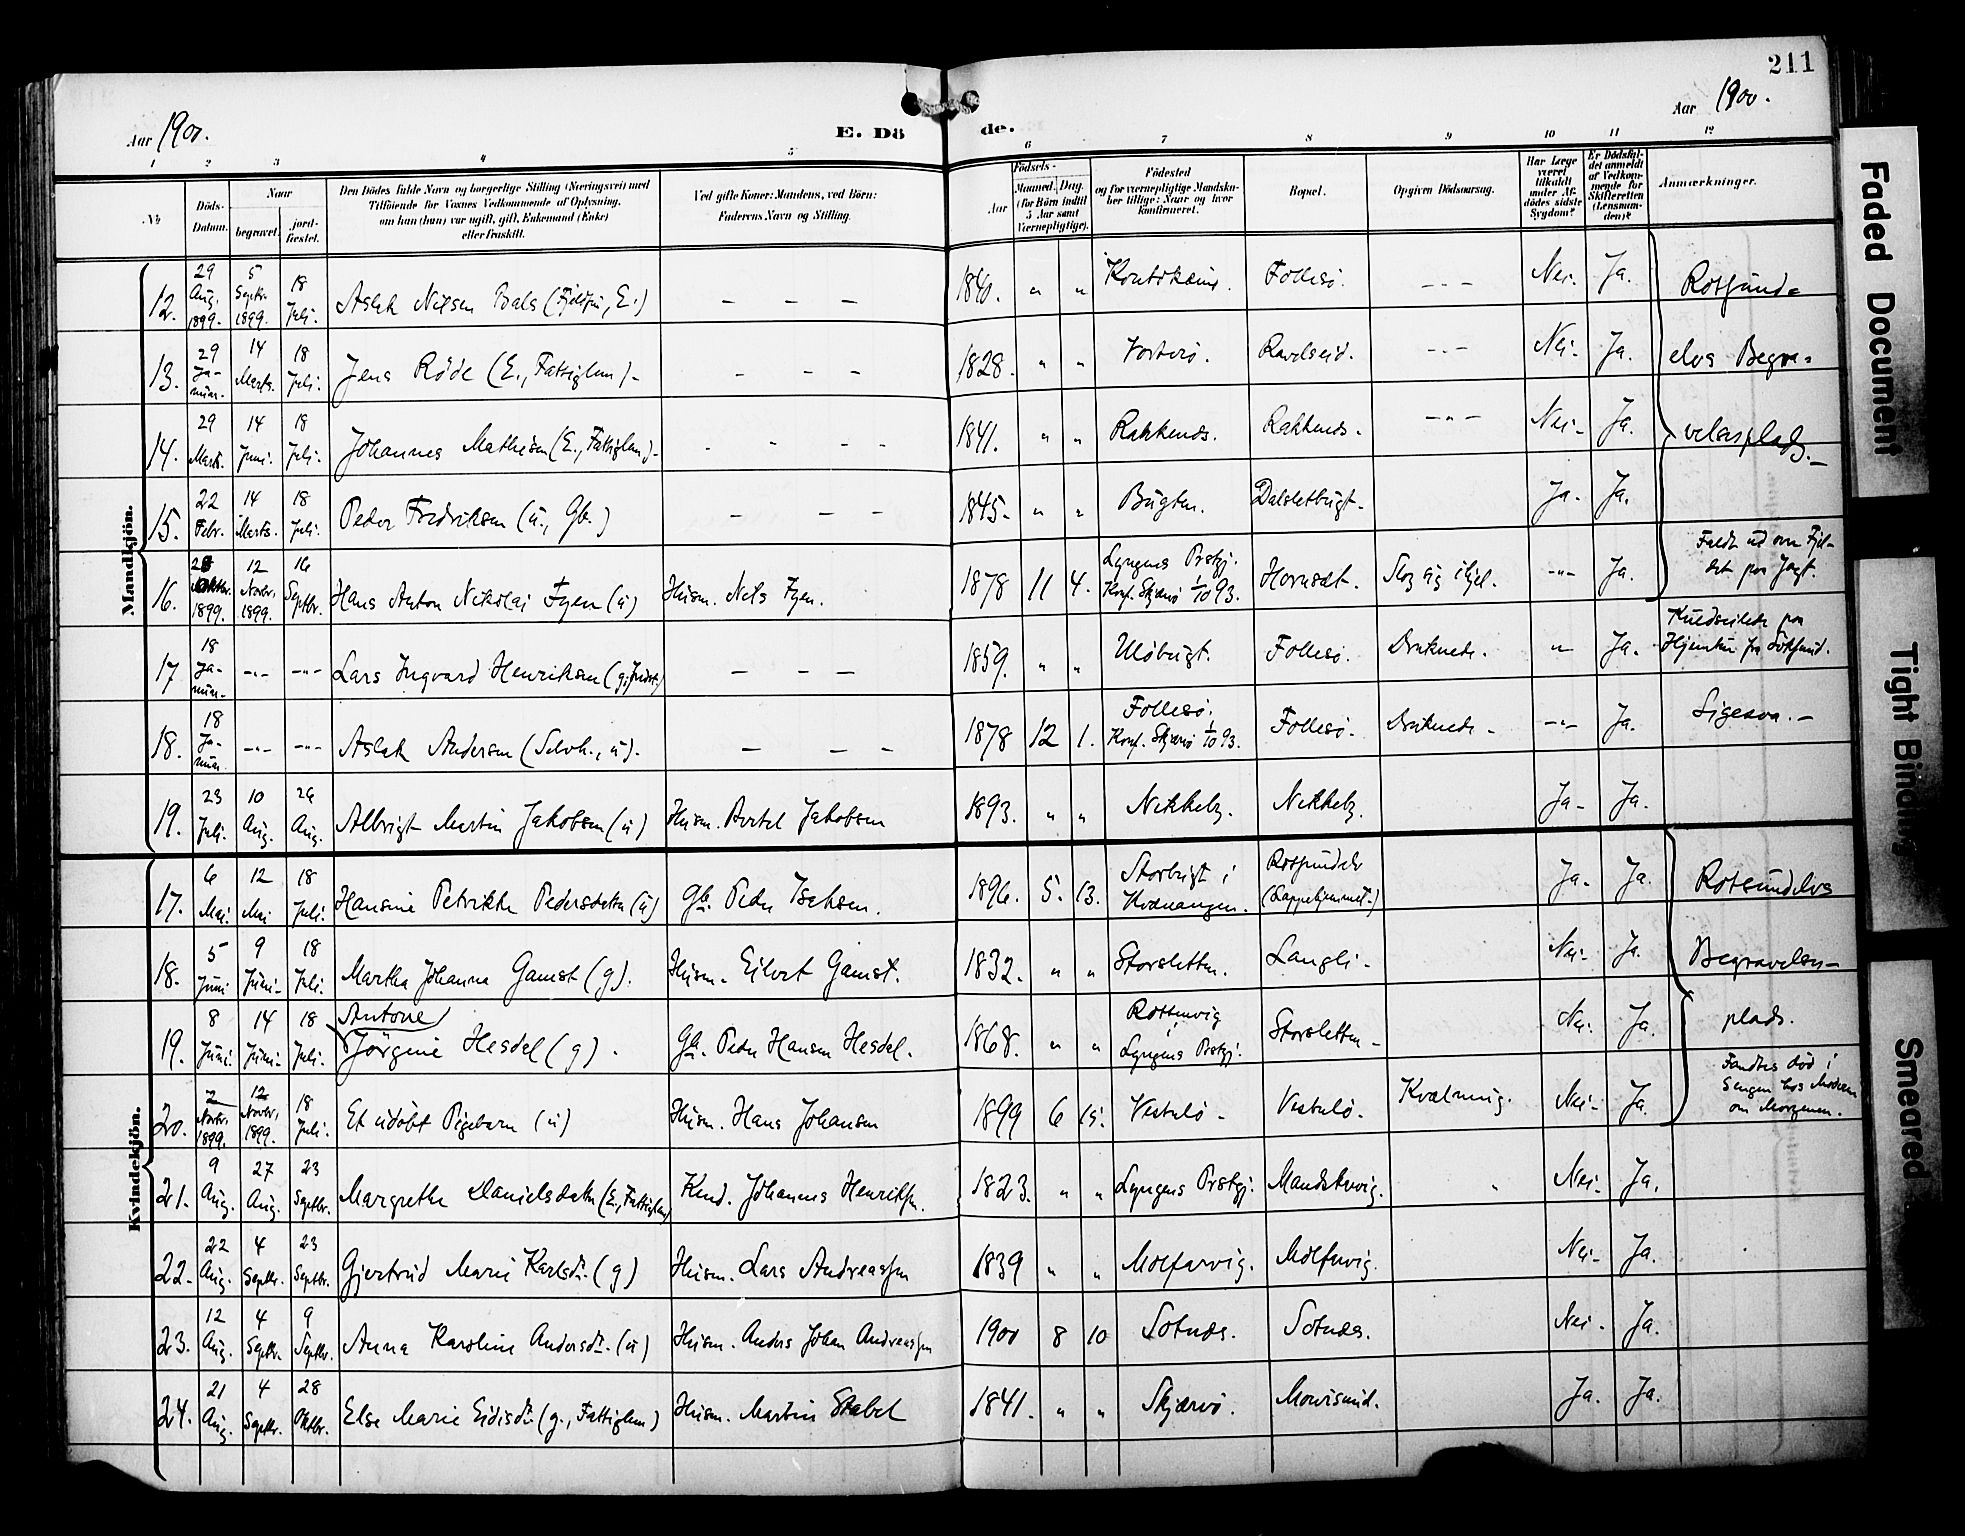 211
Aar 1900.
E. Dö
de.
Aar 1900.
1 2 3 4 5 6 7 8 9 10 11 12
No
Döds-
Datum.
Naar
begravet.
jord-
fæstet.
Den Dödes fulde Navn og borgerlige Stilling (Næringsvei) med
Tilföiende for Voxnes Vedkommende af Oplysning,
om han (hun) var ugift, gift, Enkemand (Enke)
eller fraskilt.
Ved gifte Koner: Mandens, ved Börn:
Faderens Navn og Stilling.
Födsels-
Aar
Maaned. Dag.
(for Börn indtil
5 Aar samt
Værnepligtige).
Födested
og for værnepligtige Mandskaber tillige: Naar og hvor
konfirmeret.
Bopæl.
Opgiven Dödsaarsag.
Har Læge
været
tilkaldt
under Af-
dödes sidste
Sygdom?
Er Dödsfal-
det anmeldt
af Vedkom-
mende for
Skifteretten
(Lensman-
den)?
Anmærkninger.
Mandkjön.
12. 29 Aug. 1899. 5 Septbr. 1899. 18 Juli. Aslak Nilsen Bals (Fjeldfin, E.) – – – 1840. " " Koutokeino. Follesö. -"- Nei. Ja. Rotsund-
13. 29 Januar. 14 Marts. 18 Juli. Jens Röde (E., Fattiglem) – – – 1828. " " Vorterö. Ravelseid. -"- Nei. Ja. elvs Begra-
14. 29 Marts. 14 Juni. 18 Juli. Johannes Mathisen (E., Fattiglem) - - - 1841. " " Rakkenes. Rakkenes. -"- Nei. Ja. velsesplads.
15. 22 Febr. 14 Marts. 18 Juli. Peder Fredriksen (u., Gb.) – – – 1845. " " Bugten. Dalsletbugt. Ja. Ja.
16. Oktbr. 1899. 12 Novbr. 1899. 16 Septbr. Hans Anton Nikolai Fyen (u) Husm. Nils Fyen. 1878 11 4. Lyngens Prstgj. Konf. Skjærvö 1/10 93. Hornset. Slog sig ihjel. -"- Ja. Faldt ud over Fjeldet paa Jagt.
17 18 Januar. -"- -"- Lars Ingvard Henriksen – – – 1859. " " Ulöbugt. Follesö. Druknede. " Ja. Kuldseilede paa Hjemtur fra
18. 18 Januar. -"- -"- Aslak Andersen (Selvh., u). – – – 1878 12 1. Follesö. Konf. Skjærvö 1/10 93. Follesö. Druknede. -"- Ja. Ligesaa.
19. 23 Juli. 10 Aug. 29 Aug. Albrigt Martin Jakobsen (u) Husm. Bertel Jakobsen 1893. " " Nikkeby. Nikkeby. Ja. Ja.
Kvindekjön.
17. 6 Mai. 12 Mai 18 Juli. Hansine Petrikke Pedersdatter (u) Gb. Peder Isaksen. 1896. 5. 13. Storbugt i Kvænangen. Rotsundelv (Lappehjemmet.) Ja. Ja. Rotsundelvs
18. 5 Juni 9 Juni. 18 Juli. Martha Johanna Gamst (g). Husm. Eilert Gamst. 1832. " " Storsletten. Langli. Nei. Ja. Begravelses-
19. 8 Juni. 14 Juni. 18 Juli. Antone Jörgine Hesdel (g). Gb. Peder Hansen Hesdel. 1868. " " Rottenvig i Lyngens Prstgj. Storsletten. Nei. Ja. plads.
20. 2 Novbr. 1899. 12 Novbr. 1899. 18 Juli. Et udöbt Pigebarn (u) Husm. Hans Johansen 1899 6 15. Vestulö. Vestulö. Kvælning. Nei. Ja. Fandtes död i Sengen hos Moderen om Morgenen.
21. 9 Aug. 27 Aug. 23 Septbr. Margrethe Danielsdatter (E., Fattiglem) Kmd. Johannes Henriksen. 1823. " " Lyngens Prstgj. Mandskarvig. " Nei. Ja.
22. 22 Aug. 4 Septbr. 23 Septbr. Gjertrud Marie Karlsdtr. (g) Husm. Lars Andreassen 1839 " " Molfarvig. Molfarvig. Nei. Ja.
23. 12 Aug. 4 Septbr. 9 Septbr. Anna Karoline Andersdtr. (u) Husm. Anders Johan Andreassen 1900 8 10 Sotnæs. Sotnæs. Nei. Ja.
24. 21 Aug. 4 Septbr. 28 Oktbr. Else Marie Eidisdtr. (g., Fattiglem) Husm. Martin Stabel 1841. " " Skjærvö. Maursund. Ja. Ja.
Faded Document
Tight Binding
Smeared